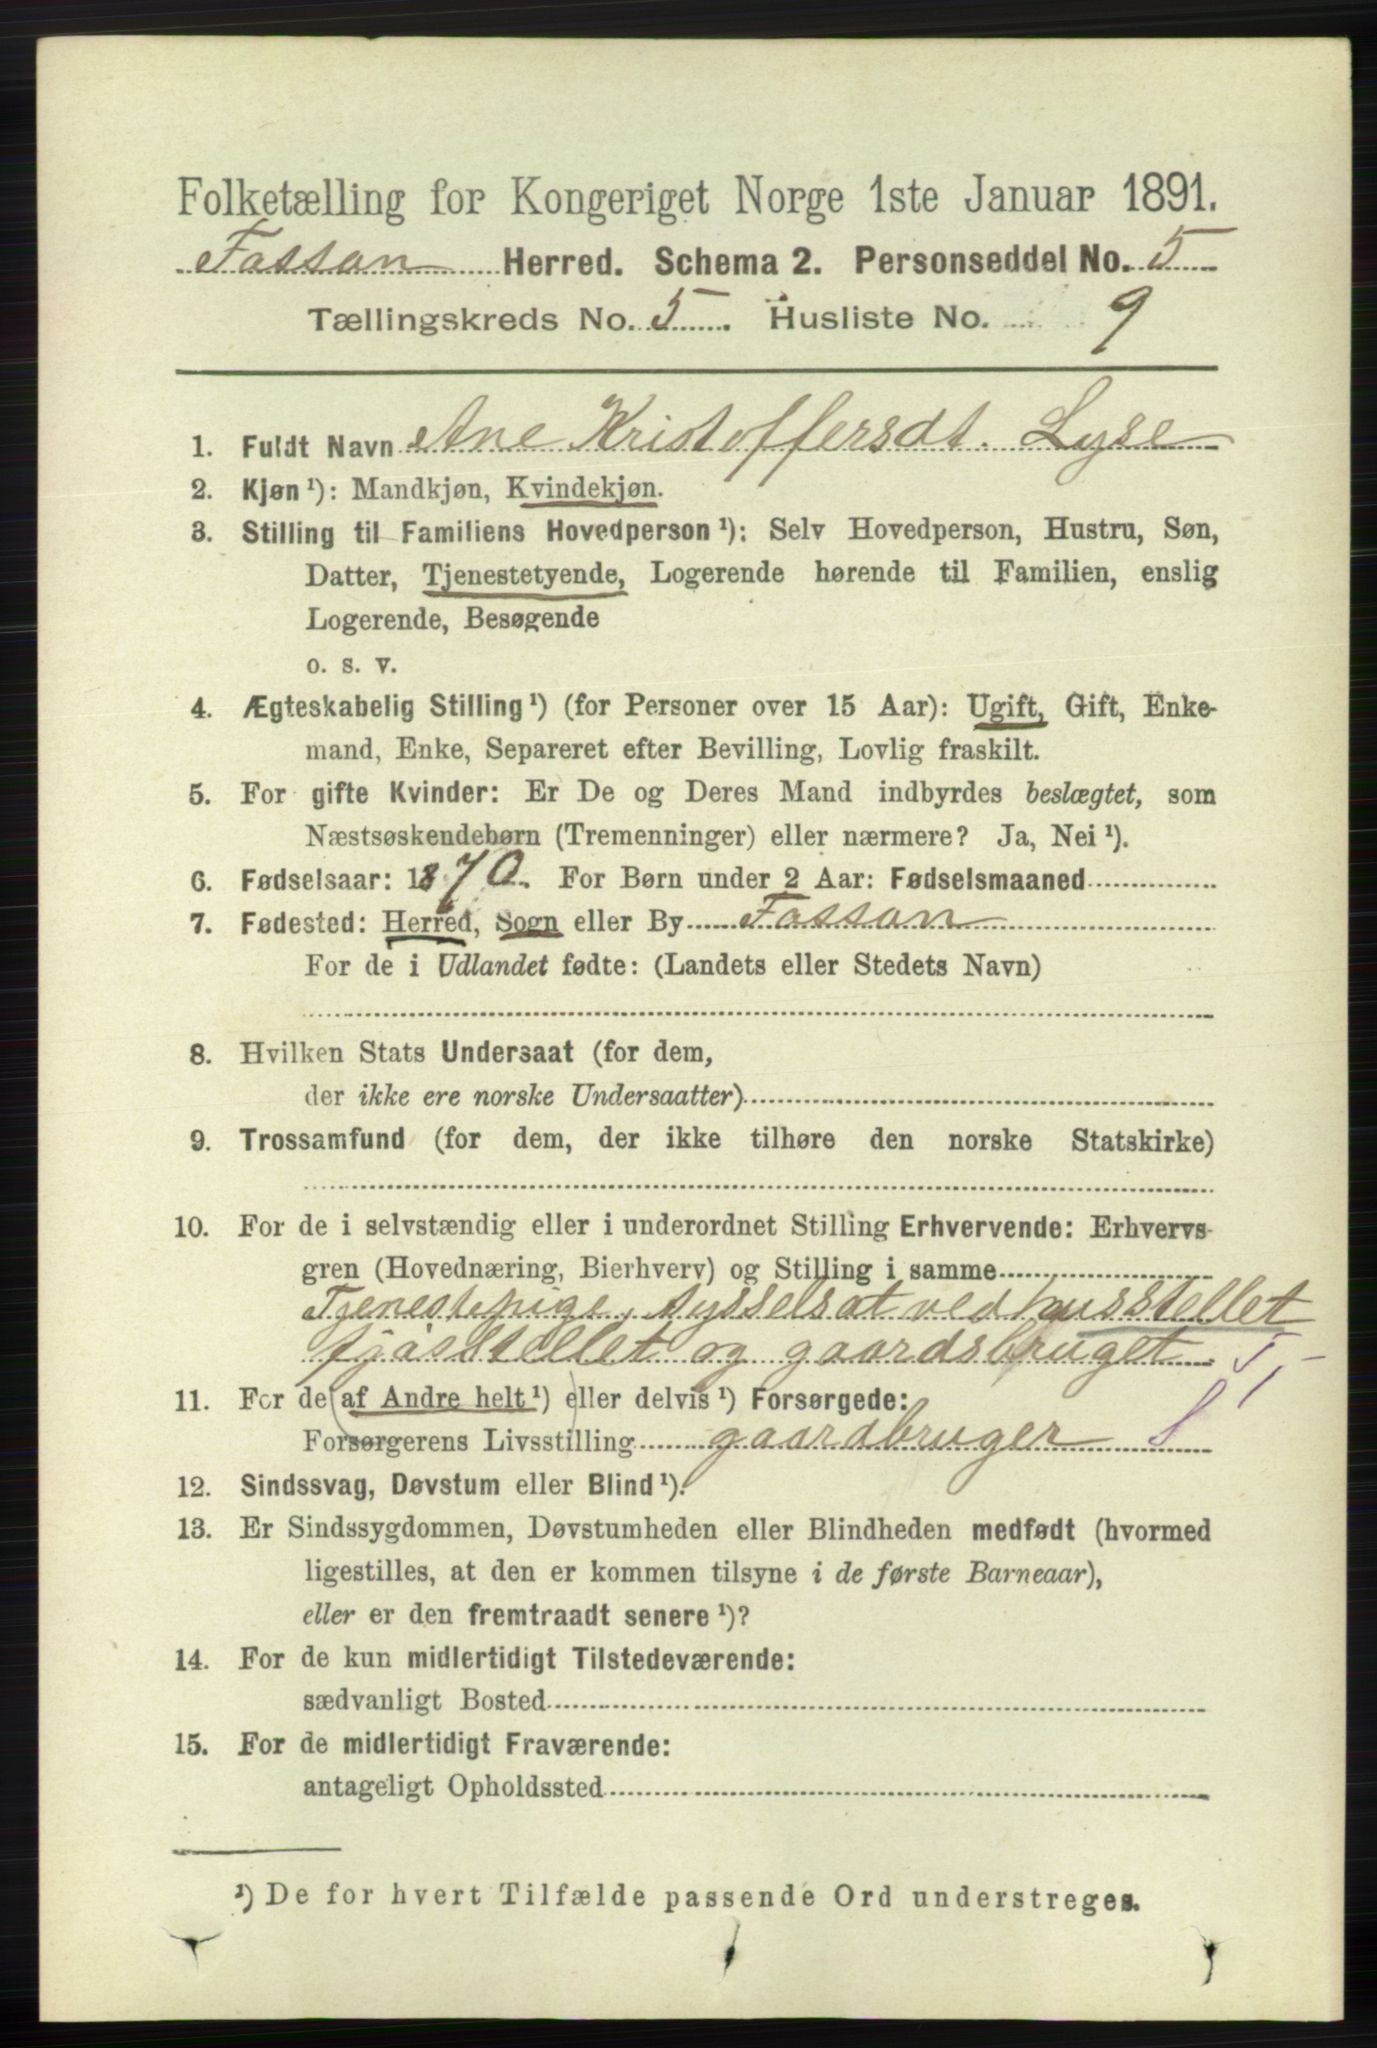 Folketælling for Kongeriget Norge 1ste Januar 1891.
Fossan Herred. Schema 2. Personseddel No. 5
Tællingskreds No. 5. Husliste No. 9
1. Fuldt Navn Ane Kristoffersdt. Lyse
2. Kjøn ¹): Mandkjøn, Kvindekjøn.
3. Stilling til Familiens Hovedperson ¹): Selv Hovedperson, Hustru, Søn,
Datter, Tjenestetyende, Logerende hørende til Familien, enslig
Logerende, Besøgende
o. s. v.
4. Ægteskabelig Stilling ¹) (for Personer over 15 Aar): Ugift, Gift, Enke-
mand, Enke, Separeret efter Bevilling, Lovlig fraskilt.
5. For gifte Kvinder: Er De og Deres Mand indbyrdes beslægtet, som
Næstsøskendebørn (Tremenninger) eller nærmere? Ja, Nei ¹).
6. Fødselsaar: 1870. For Børn under 2 Aar: Fødselsmaaned
7. Fødested: Herred, Sogn eller By Fossan
For de i Udlandet fødte: (Landets eller Stedets Navn)
8. Hvilken Stats Undersaat (for dem,
der ikke ere norske Undersaatter)
9. Trossamfund (for dem, der ikke tilhøre den norske Statskirke)
10. For de i selvstændig eller i underordnet Stilling Erhvervende: Erhvervs-
gren (Hovednæring, Bierhverv) og Stilling i samme
Tjenestepige, sysselsat ved husstellet
fjøsstellet og gaardsbruget.
11. For de (af Andre helt ¹) eller delvis ¹) Forsørgede:
Forsørgerens Livsstilling gaardbruger
12. Sindssvag, Døvstum eller Blind ¹).
13. Er Sindssygdommen, Døvstumheden eller Blindheden medfødt (hvormed
ligestilles, at den er kommen tilsyne i de første Barneaar),
eller er den fremtraadt senere ¹)?
14. For de kun midlertidigt Tilstedeværende:
sædvanligt Bosted
15. For de midlertidigt Fraværende:
antageligt Opholdssted
¹) De for hvert Tilfælde passende Ord understreges.